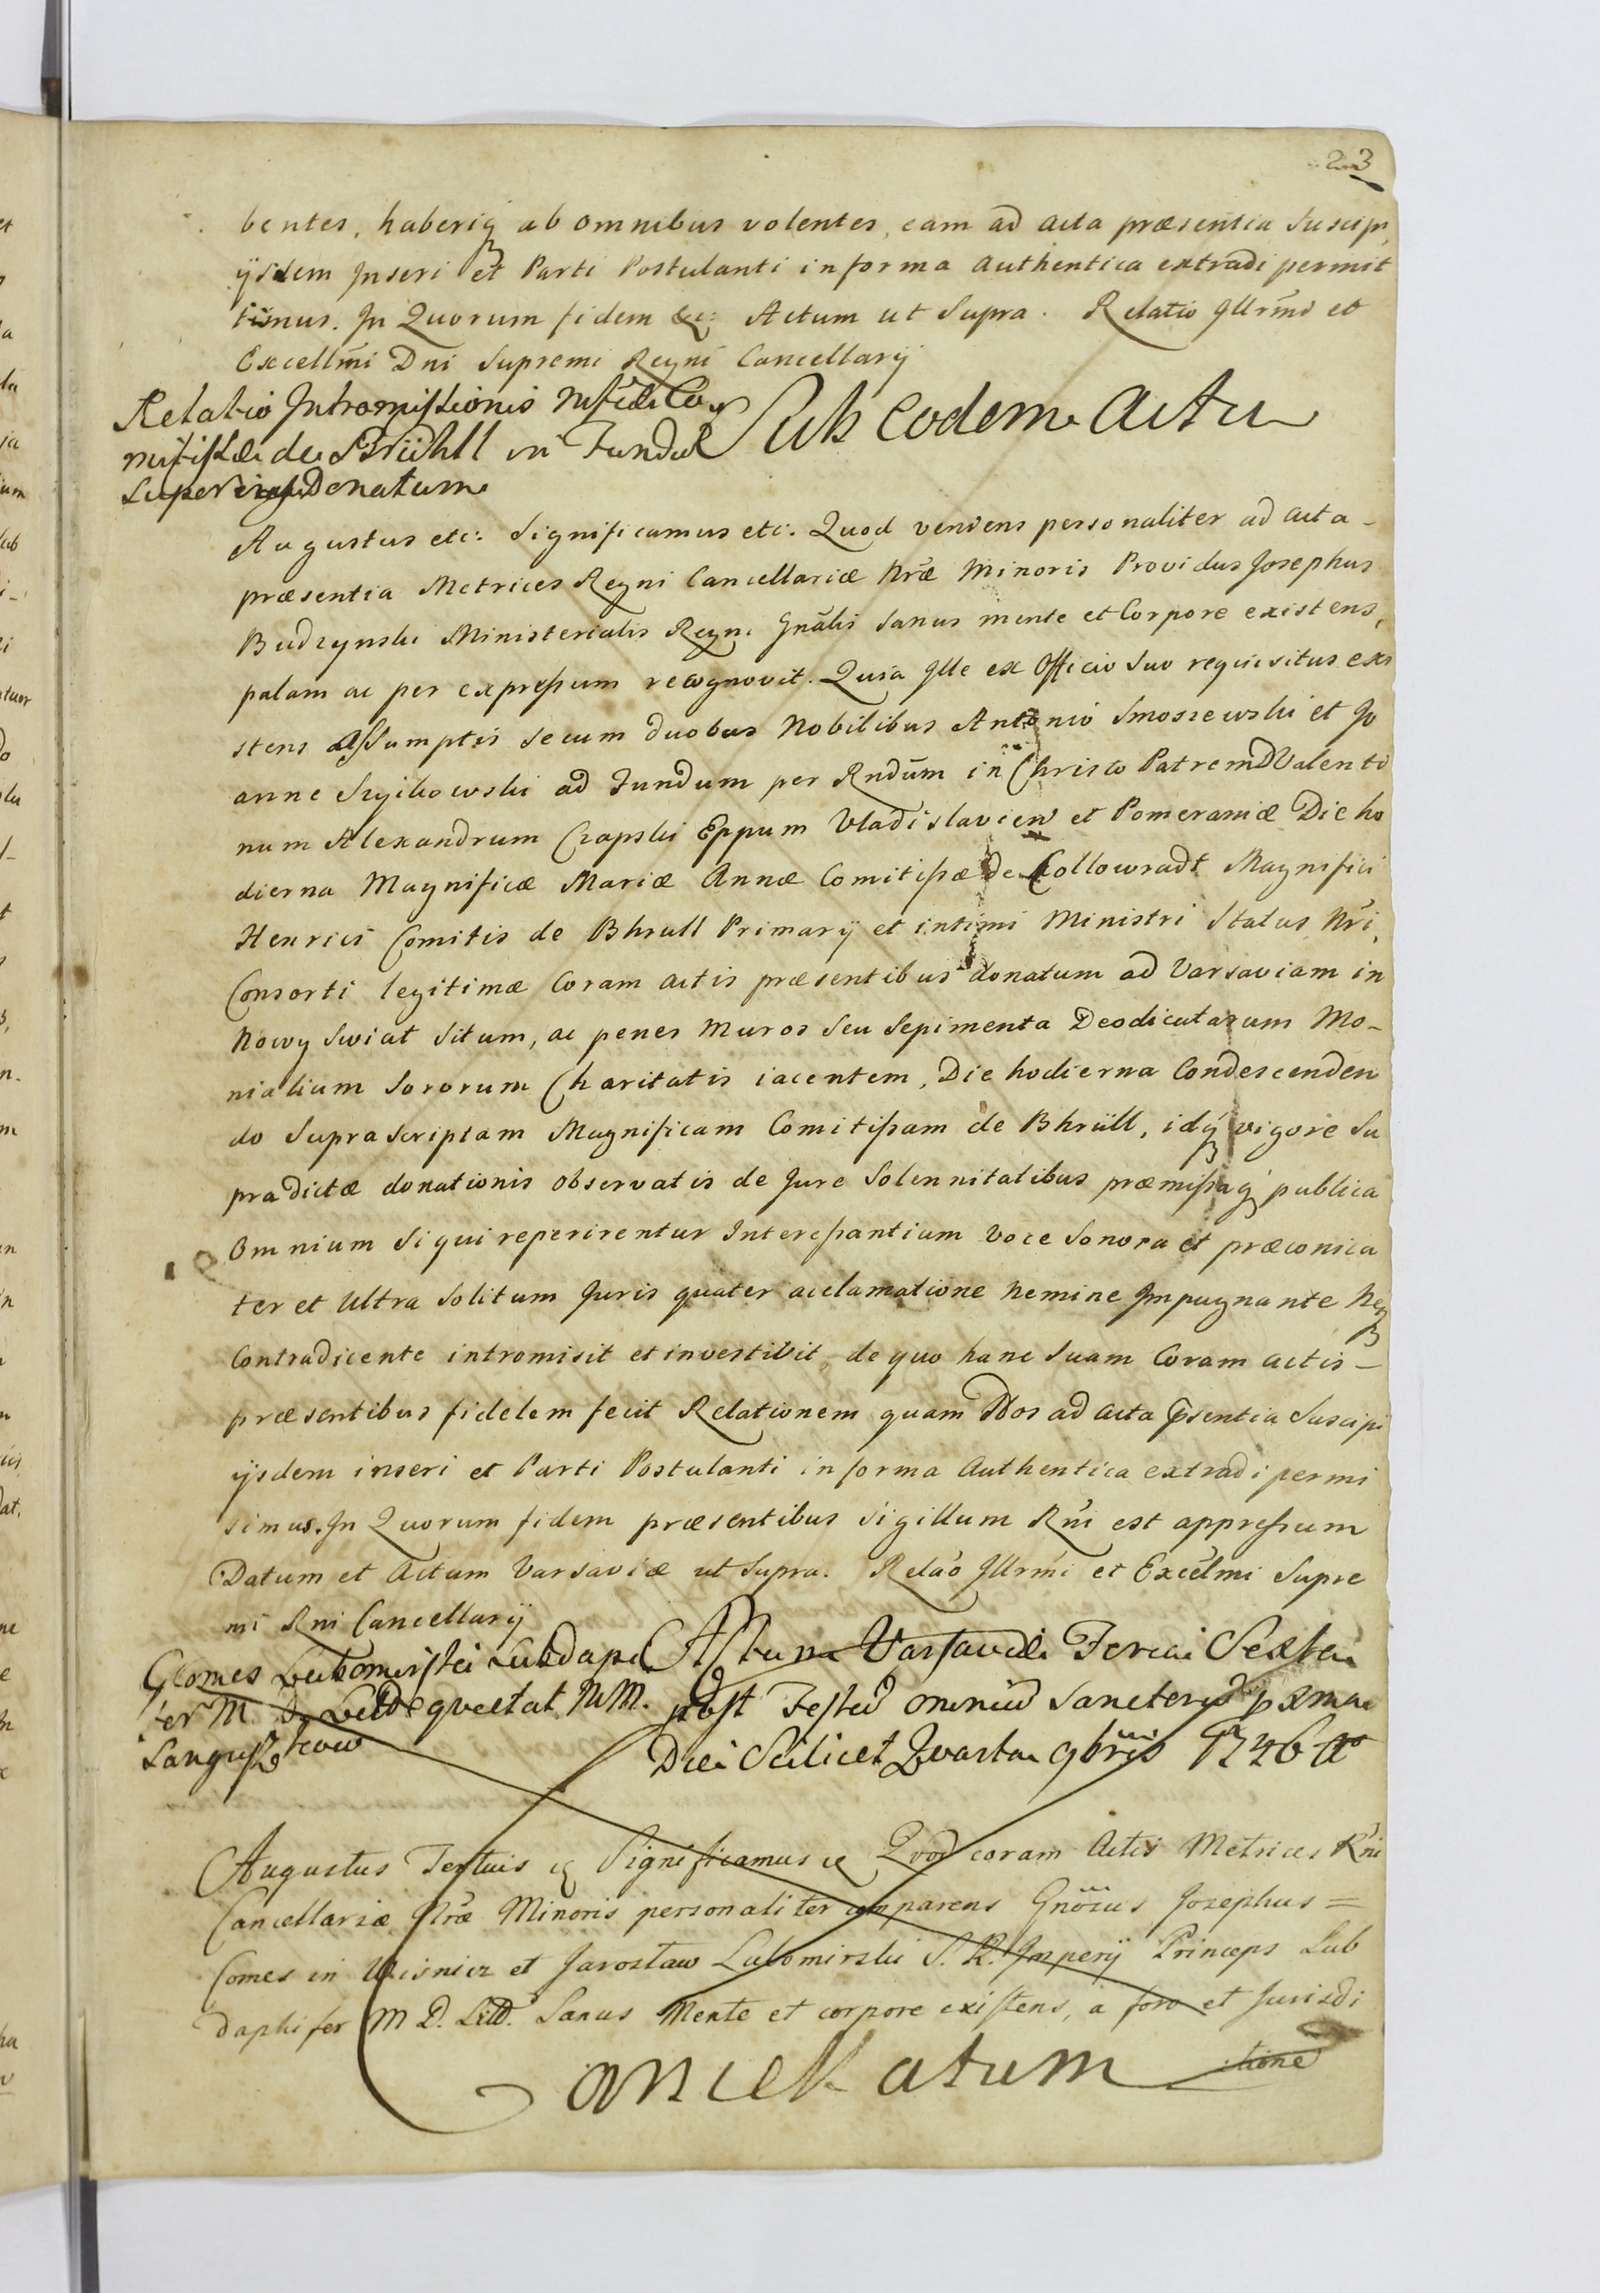 23
bentes, haberiq ab omnibus volentes, eam ad acta præsentia suscipi,
ijsdem Inseri et Parti Postulanti in forma authentica extradi permit
timus. In Quorum fidem &c: Actum ut Supra. Relatio Illrmi et
Excellmi Dni Supremi Regni Cancellarij
Relatio Intromissionis Co
mitissæ de Brühll in Fundu
Super donatum
Sub eodem Actu
Augustus etc: Significamus etc. Quod veniens personaliter ad acta
præsentia Metrices Regni Cancellariæ Nræ Minoris Providus Josephus
Budzynski Ministerialis Regni Gnalis sanus mente et Corpore existens,
palam ac per expressum recognovit. Quia Ille ex Officio suo requisitus exi
stens assumptis secum duobus Nobilibus Antonio Smoszewski et Jo
anne Szyikowski ad Fundum per Rndum in Christo Patrem D Valenti
num Alexandrum Czapski Eppum Vladislavien et Pomeraniæ Die ho
dierna Magnificæ Mariæ Annæ Comitissæ de Collowradt Magnifici
Henrici Comitis de Bhrull Primarij et intimi Ministri Status Nri,
Consorti legitimæ Coram actis præsentibus donatum ad Varsaviam in
Nowy Swiat situm, ac penes Muros seu Sepimenta Deodicatarum Mo-
nialium Sororum Charitatis iacentem, Die hodierna Condescenden
do Suprascriptam Magnificam Comitissam de Bhrüll, idq vigore Su
pradictæ donationis observatis de Jure Solennitatibus præmissaq publica
Omnium si qui reperirentur Interessantium voce sonora et præconica
ter et Ultra Solitum Juris quater acclamatione Nemine Impugnante Neq
Contradicente intromisit et investivit, de quo hanc suam Coram actis
præsentibus fidelem fecit Relationem quam Nos ad acta psentia Suscipi
ijsdem inseri et Parti Postulanti in forma Authentica extradi permi
simus. In Quorum fidem præsentibus sigillum Rni est appressum
Datum et Actum Varsaviæ ut Supra. Relao Illrmi et Excelmi Supre
mi Rni Cancellarij
Comes Lubomirski Subdapi
fer M. D. Litt quietat MM.
Sanguszkow
Actum Varsaviæ Feria Sexta
post Festu omniu Sanctoru pxma
Die Scilicet Quarta 9bris 1746 Ao
Augustus Tertius &c Significamus &c Quod coram Actis Metrices Rni
Cancellariæ Nræ Minoris personaliter comparens Gnosus Josephus =
Comes in Wisnicz et Jarosław Lubomirski S. R. Imperij Princeps Sub
dapifer M D. Litt. Sanus Mente et corpore existens, a foro et Jurisdi
ctione
Cancellatum